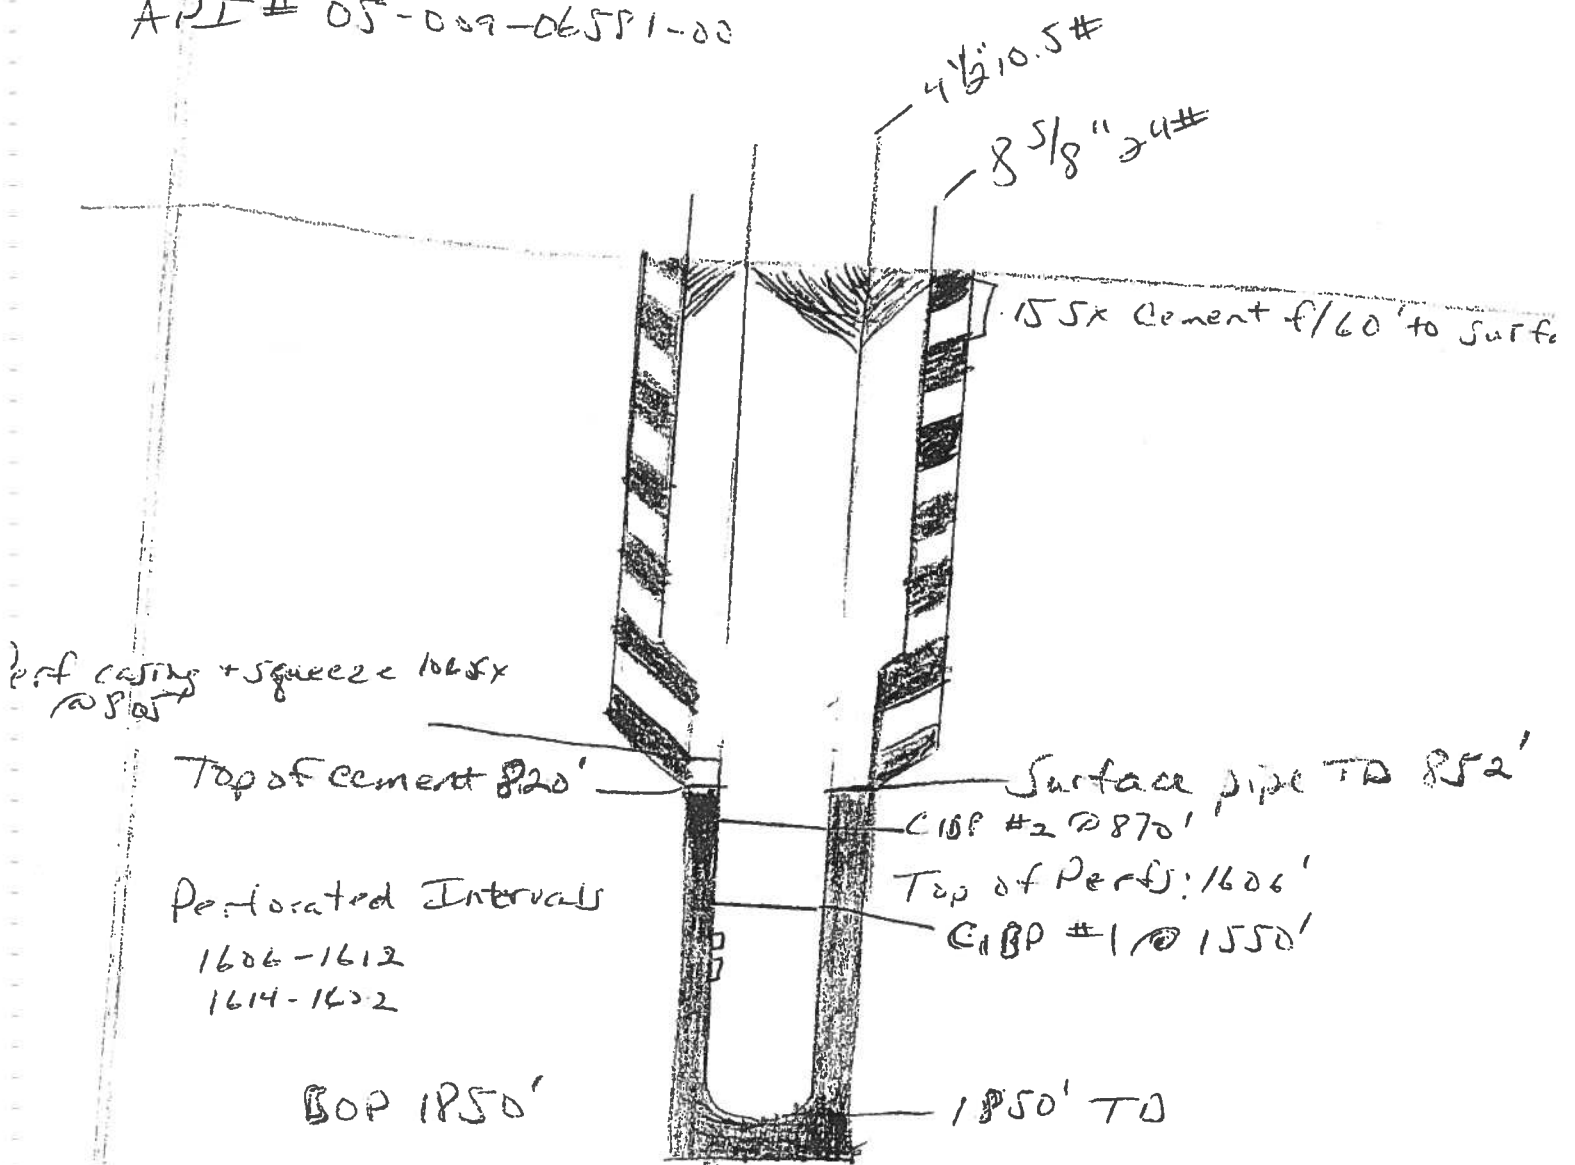 API # 05-009-06581-00
4 1/2" 10.5#
8 5/8" 24#
15 Sx Cement f/60' to Surfa
Perf casing + squeeze 106 sx
@ 805'
Top of Cement 820'
Surface pipe TD 852'
CIBP #2 @ 870'
Top of Perfs: 1606'
Perforated Intervals
CIBP #1 @ 1550'
1606-1612
1614-1622
BOP 1850'
1850' TD